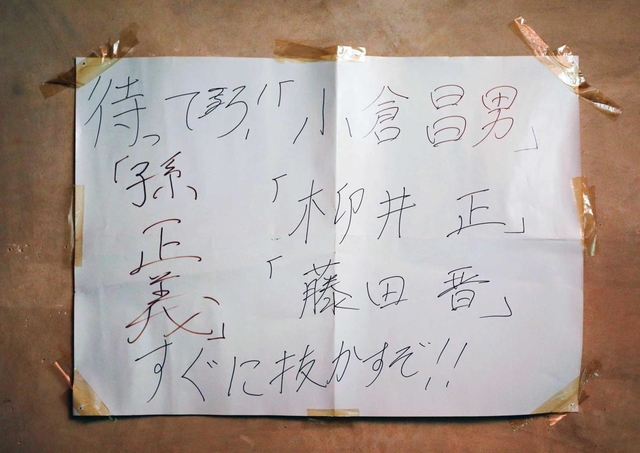 待ってろ、「小倉昌男」
「孫正義」
「柳井 正」
「藤田 晋」
すぐに抜かすぞ!!